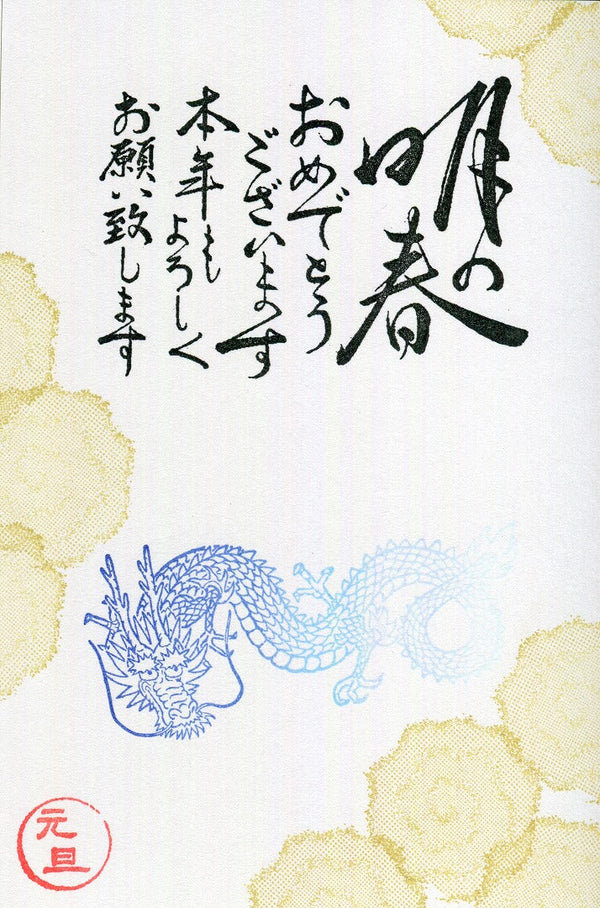 明の春
おめでとう
ございます
本年もよろしく
お願い致します
元旦